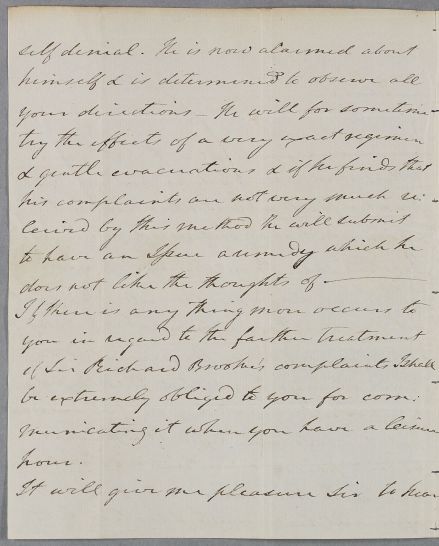 self denial. He is now alarmed about
himself & is determined to observe all
your directions – He will for sometime
try the effects of a very exact regimen
& gentle evacuations & if he finds that
his complaints are not very much re:
leived by this method he will submit
to have an Issue a remedy which he
does not like the thoughts of –
If there is any thing more occurs to
you in regard to the farther treatment
of Sir Richard Brooke's complaints I shall
be extremely obliged to you for com:
municating it when you have a leisure
hour.
It will give me pleasure Sir to hear